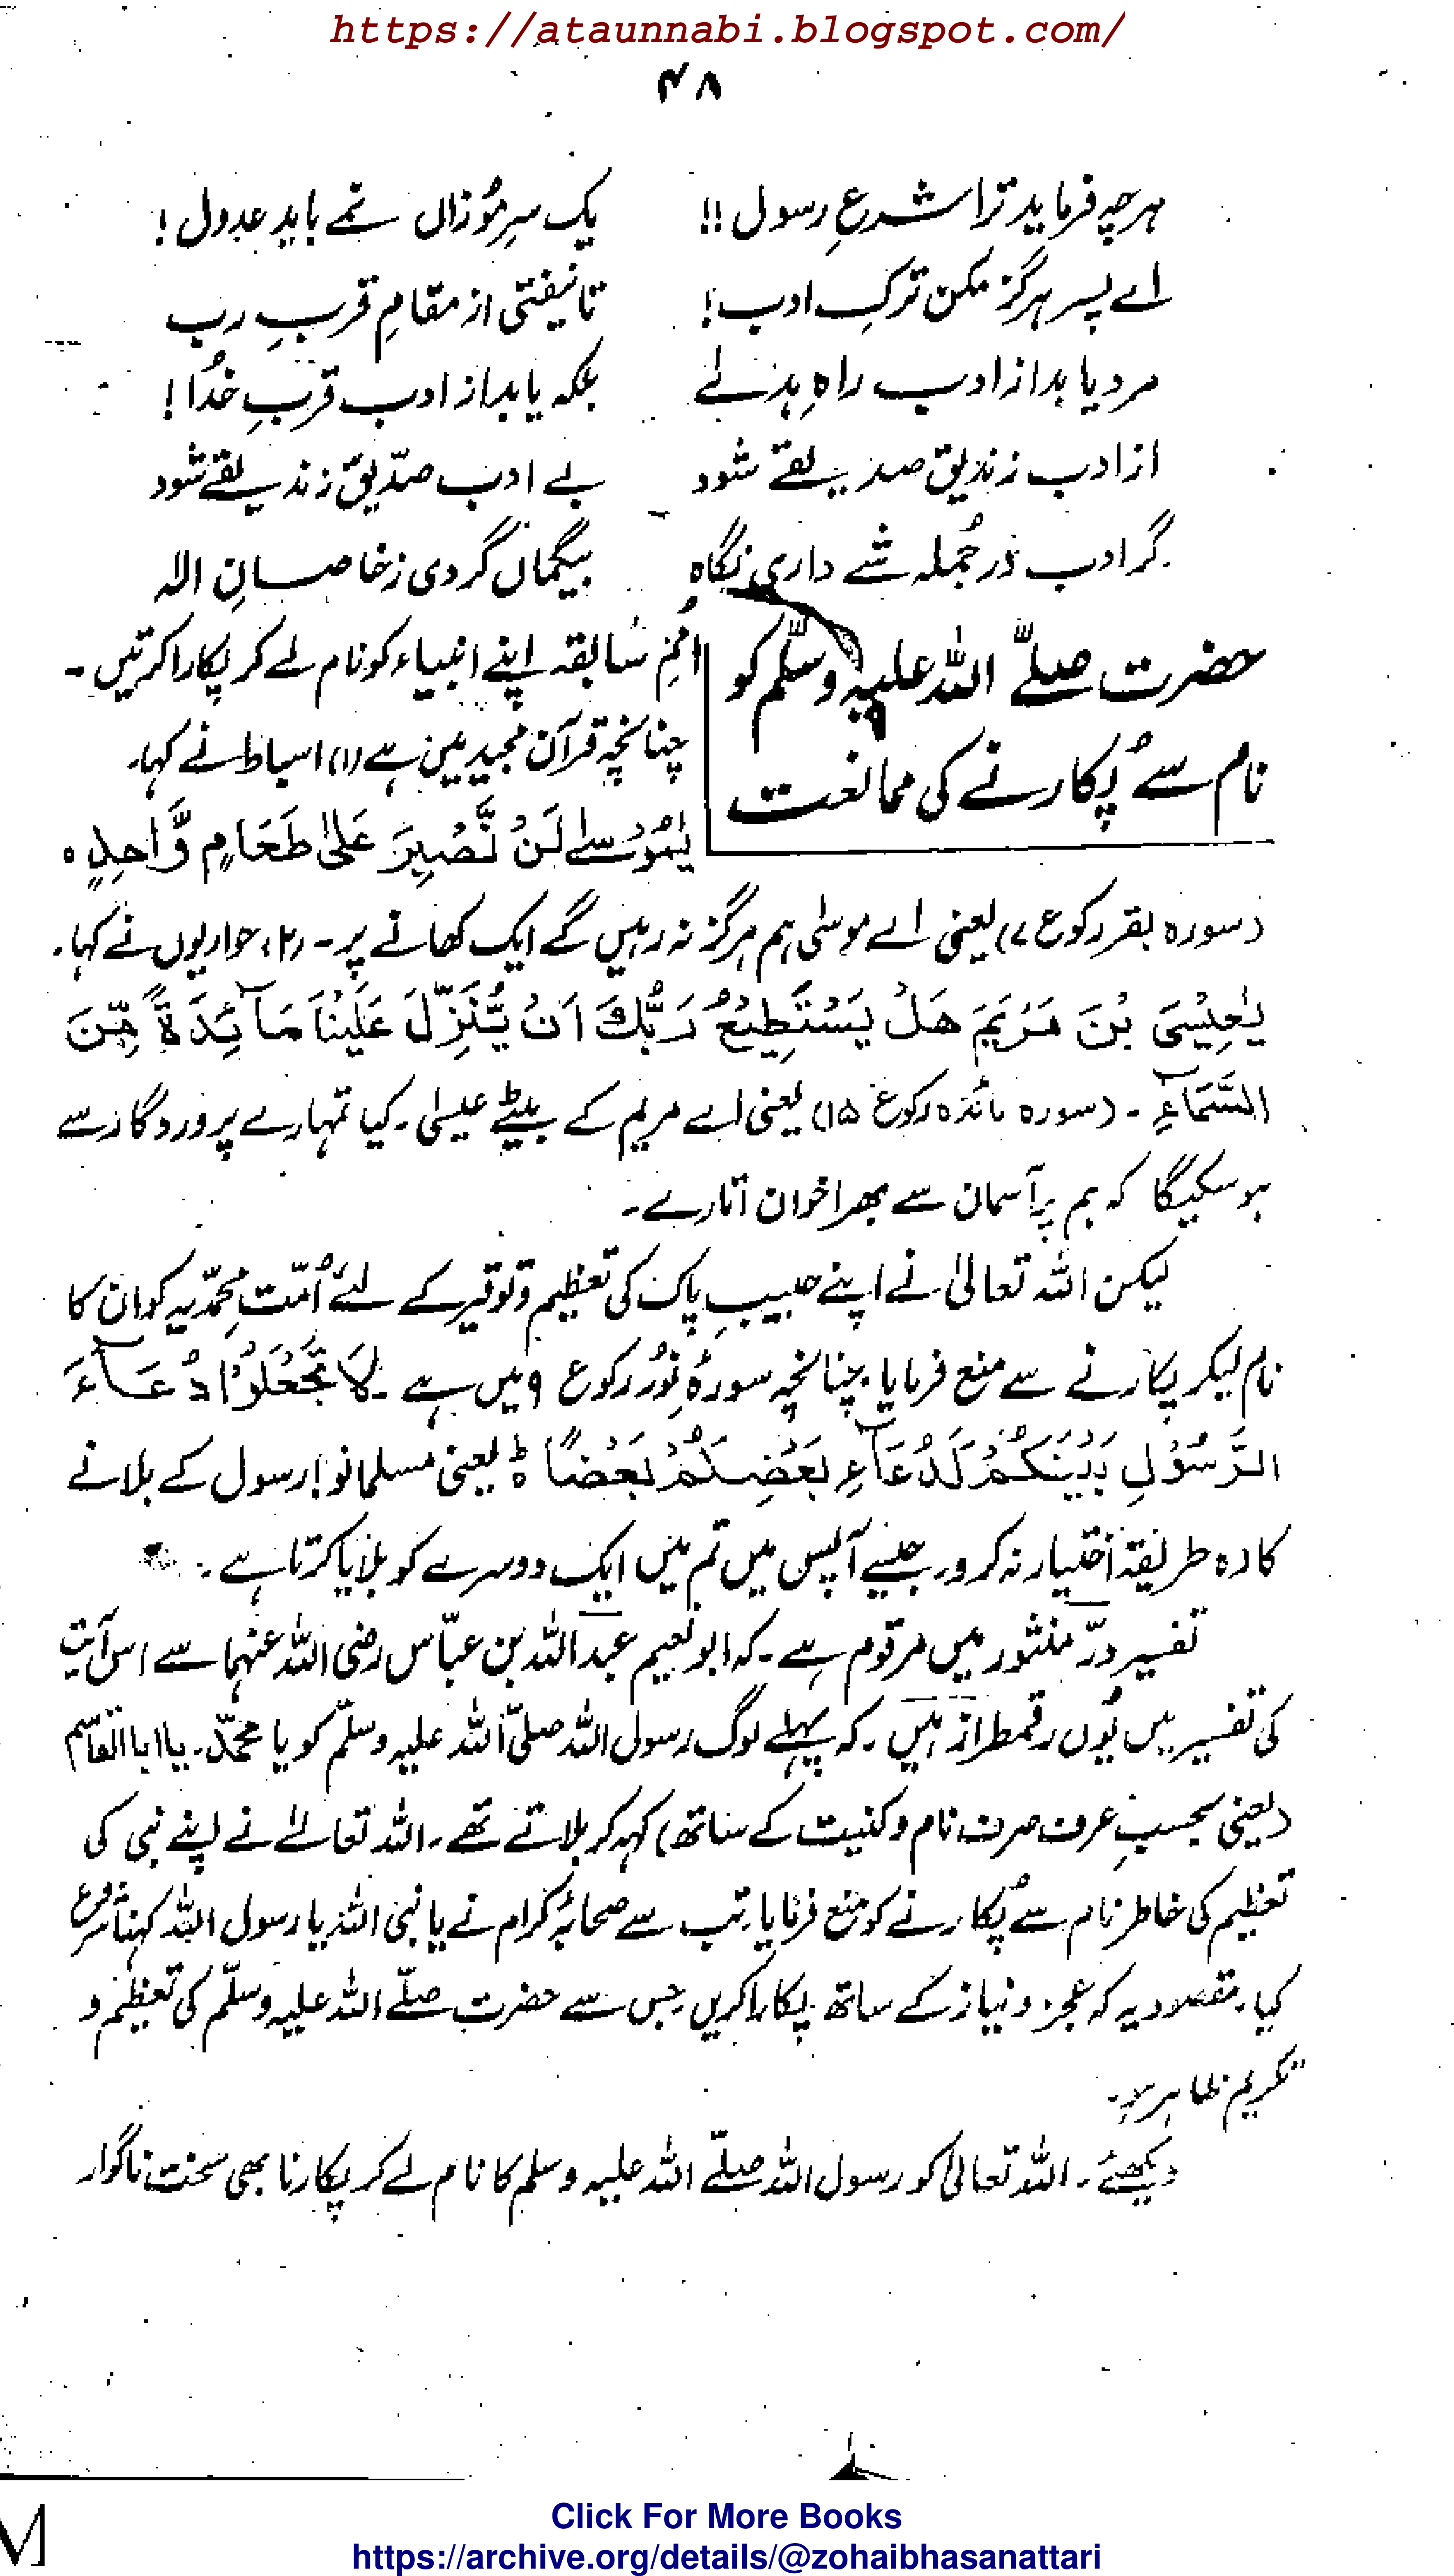 https://ataunnabi.blogspot.com/
۴۸
ہرچہ فرماید ترا شرعِ رسول !! یک سرِ مُو زاں نمے باید عدول !
اے پسر ہرگز مکن ترکِ ادب ! تا نیفتی از مقامِ قربِ رب
مرد یابد از ادب راہِ ہدےٰ بلکہ یابد از ادب قربِ خدُا !
از ادب زندیق صدیقے شود بے ادب صدّیق زندیقے شود
گر ادب در جُملہ شے داری نگاہ بیگماں گردی ز خاصانِ الٰہ
حضرت صلےّ اللہ علیہ وسلّم کو
نام سے پُکارنے کی ممانعت
اُممِ سابقہ اپنے انبیاء کو نام لے کر پکارا کرتیں ۔
چنانچہ قرآن مجید میں ہے (۱) اسباط نے کہا۔
یٰمُوْسٰے لَنْ نَّصْبِرَ عَلیٰ طَعَامٍ وَّاحِدٍ ہ
(سورہ بقر رکوع ۷) یعنی اے موسٰی ہم ہرگز نہ رہیں گے ایک کھانے پر ۔ (۲) حواریوں نے کہا۔
یٰعِیْسَی بْنَ مَرْیَمَ هَلْ یَسْتَطِیْعُ رَبُّكَ اَنْ یُّنَزِّلَ عَلَیْنَا مَآئِدَةً مِّنَ
السَّمَآءِ ۔ (سورہ مائدہ رکوع ۱۵) یعنی اے مریم کے بیٹے عیسٰی ۔ کیا تمہارے پروردگار سے
ہو سکیگا کہ ہم پر آسمان سے بھرا خوان اتارے ۔
لیکن اللہ تعالیٰ نے اپنے حبیبِ پاک کی تعظیم و توقیر کے لئے اُمّتِ محمّدیہ کو ان کا
نام لیکر پکارنے سے منع فرمایا ۔ چنانچہ سورۂ نُور رکوع ۹ میں ہے ۔ لَا تَجْعَلُوْا دُعَآءَ
الرَّسُوْلِ بَیْنَكُمْ كَدُعَآءِ بَعْضِكُمْ بَعْضًا ط یعنی مسلمانو! رسول کے بلانے
کا وہ طریقہ اختیار نہ کرو۔ جیسے آپس میں تم میں ایک دوسرے کو بلایا کرتا ہے ۔
تفسیر درّ منثور میں مرقوم ہے ۔ کہ ابو نعیم عبداللہ بن عبّاس رضی اللہ عنہما سے اس آیت
کی تفسیر میں یُوں رقمطراز ہیں ۔ کہ پہلے لوگ رسول اللہ صلّی اللہ علیہ وسلّم کو یا محمّد ۔ یا ابا القاسم
(یعنی بحسبِ عرف صرف نام و کنیت کے ساتھ) کہہ کر بلاتے تھے ۔ اللہ تعالےٰ نے اپنے نبی کی
تعظیم کی خاطر نام سے پُکارنے کو منع فرمایا ۔ تب سے صحابۂ کرام نے یا نبی اللہ یا رسول اللہ کہنا شروع
کیا ۔ مقصد یہ کہ عجز و نیاز کے ساتھ پکارا کریں ۔ جس سے حضرت صلّے اللہ علیہ وسلّم کی تعظیم و
تکریم ظاہر ہو ۔
دیکھیئے ۔ اللہ تعالیٰ کو رسول اللہ صلّے اللہ علیہ وسلم کا نام لے کر پکارنا بھی سخت ناگوار
Click For More Books
https://archive.org/details/@zohaibhasanattari